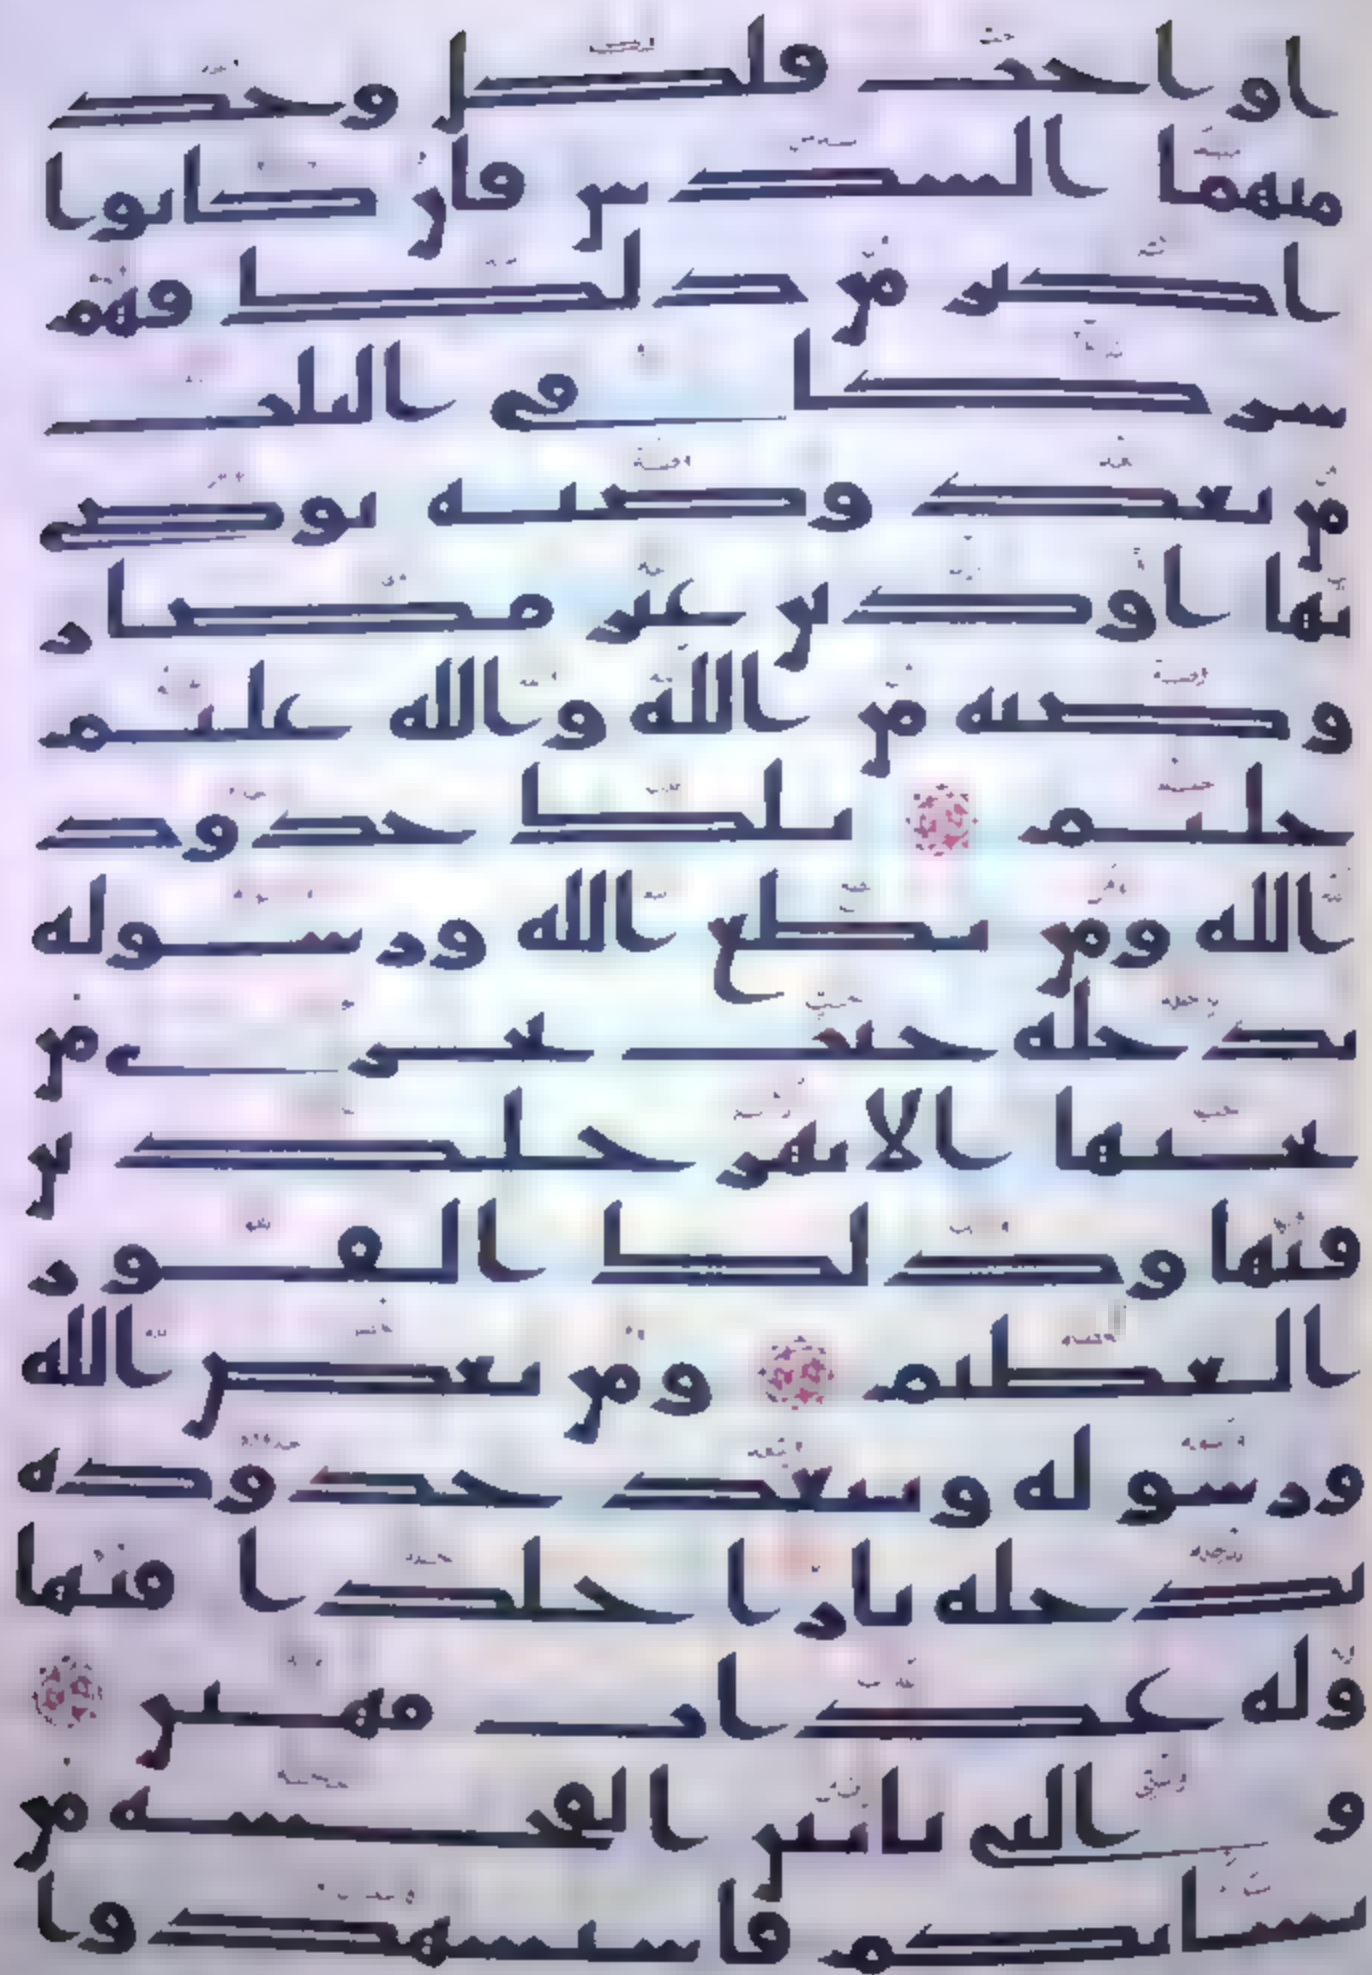 او احت فلكل وحد
منهما السدس فان كانوا
اكثر من ذلك فهم
شركا في الثلث
من بعد وصية يوصى
بها او دين غير مضار
وصية من الله والله عليم
حليم تلك حدود
الله ومن يطع الله ورسوله
يدخله جنت تجرى من
تحتها الانهر خلدين
فيها وذلك الفوز
العظيم ومن يعص الله
ورسوله ويتعد حدوده
يدخله نارا خلدا فيها
وله عذاب مهين
والتى ياتين الفحشة من
نسائكم فاستشهدوا